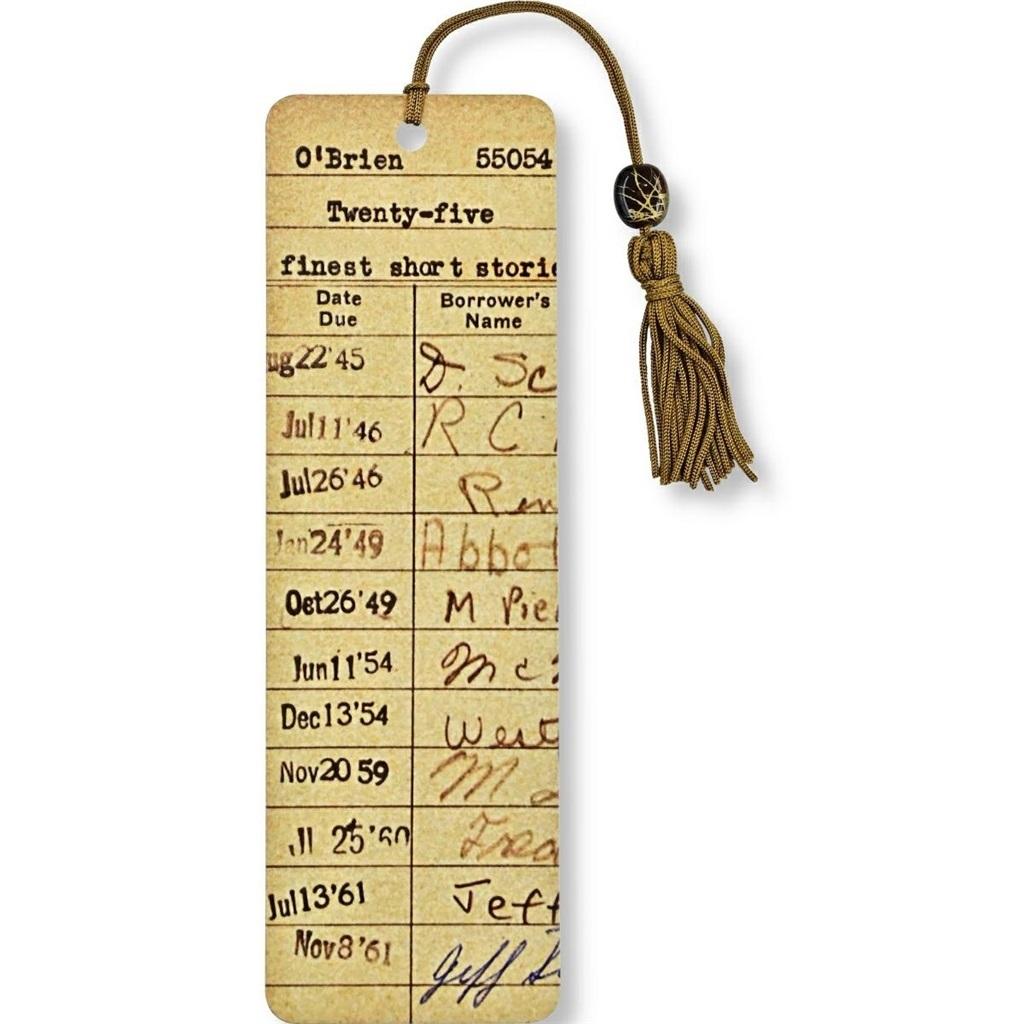 O'Brien 55054
Twenty-five
finest short storie
Date Due Borrower's Name
ug22'45 D. Sc
Jul11'46 R C
Jul26'46 Ren
Jan24'49 Abbot
Oct26'49 M Pie
Jun11'54 Mc
Dec13'54 West
Nov20 59 M
Jl 25'60 Fred
Jul13'61 Jeff
Nov8'61 Jeff